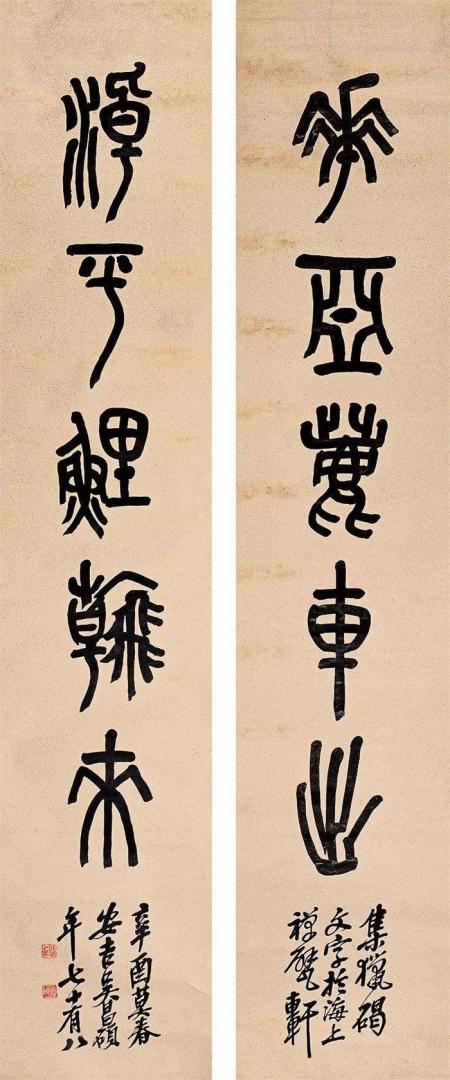 華亞鹿車出
集獵碣
文字於海上
禪甓軒
潮平鯉翰來
辛酉莫春
安吉吳昌碩
年七十有八